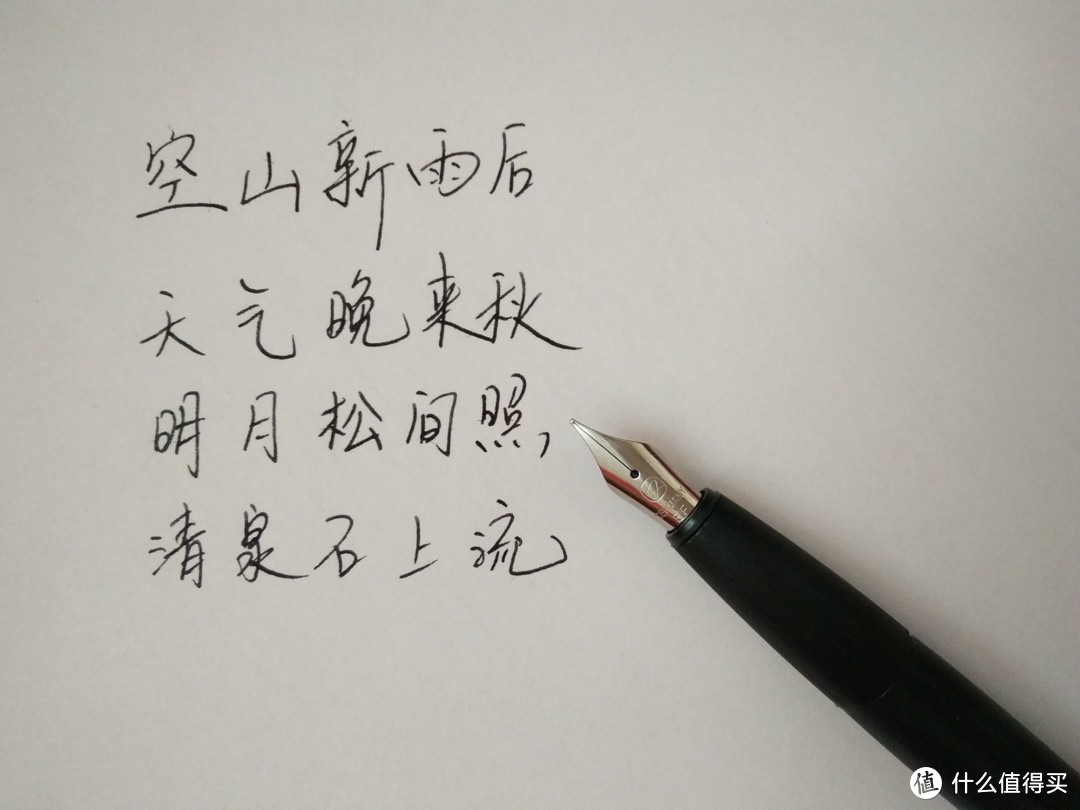 空山新雨后
天气晚来秋
明月松间照,
清泉石上流
值 什么值得买